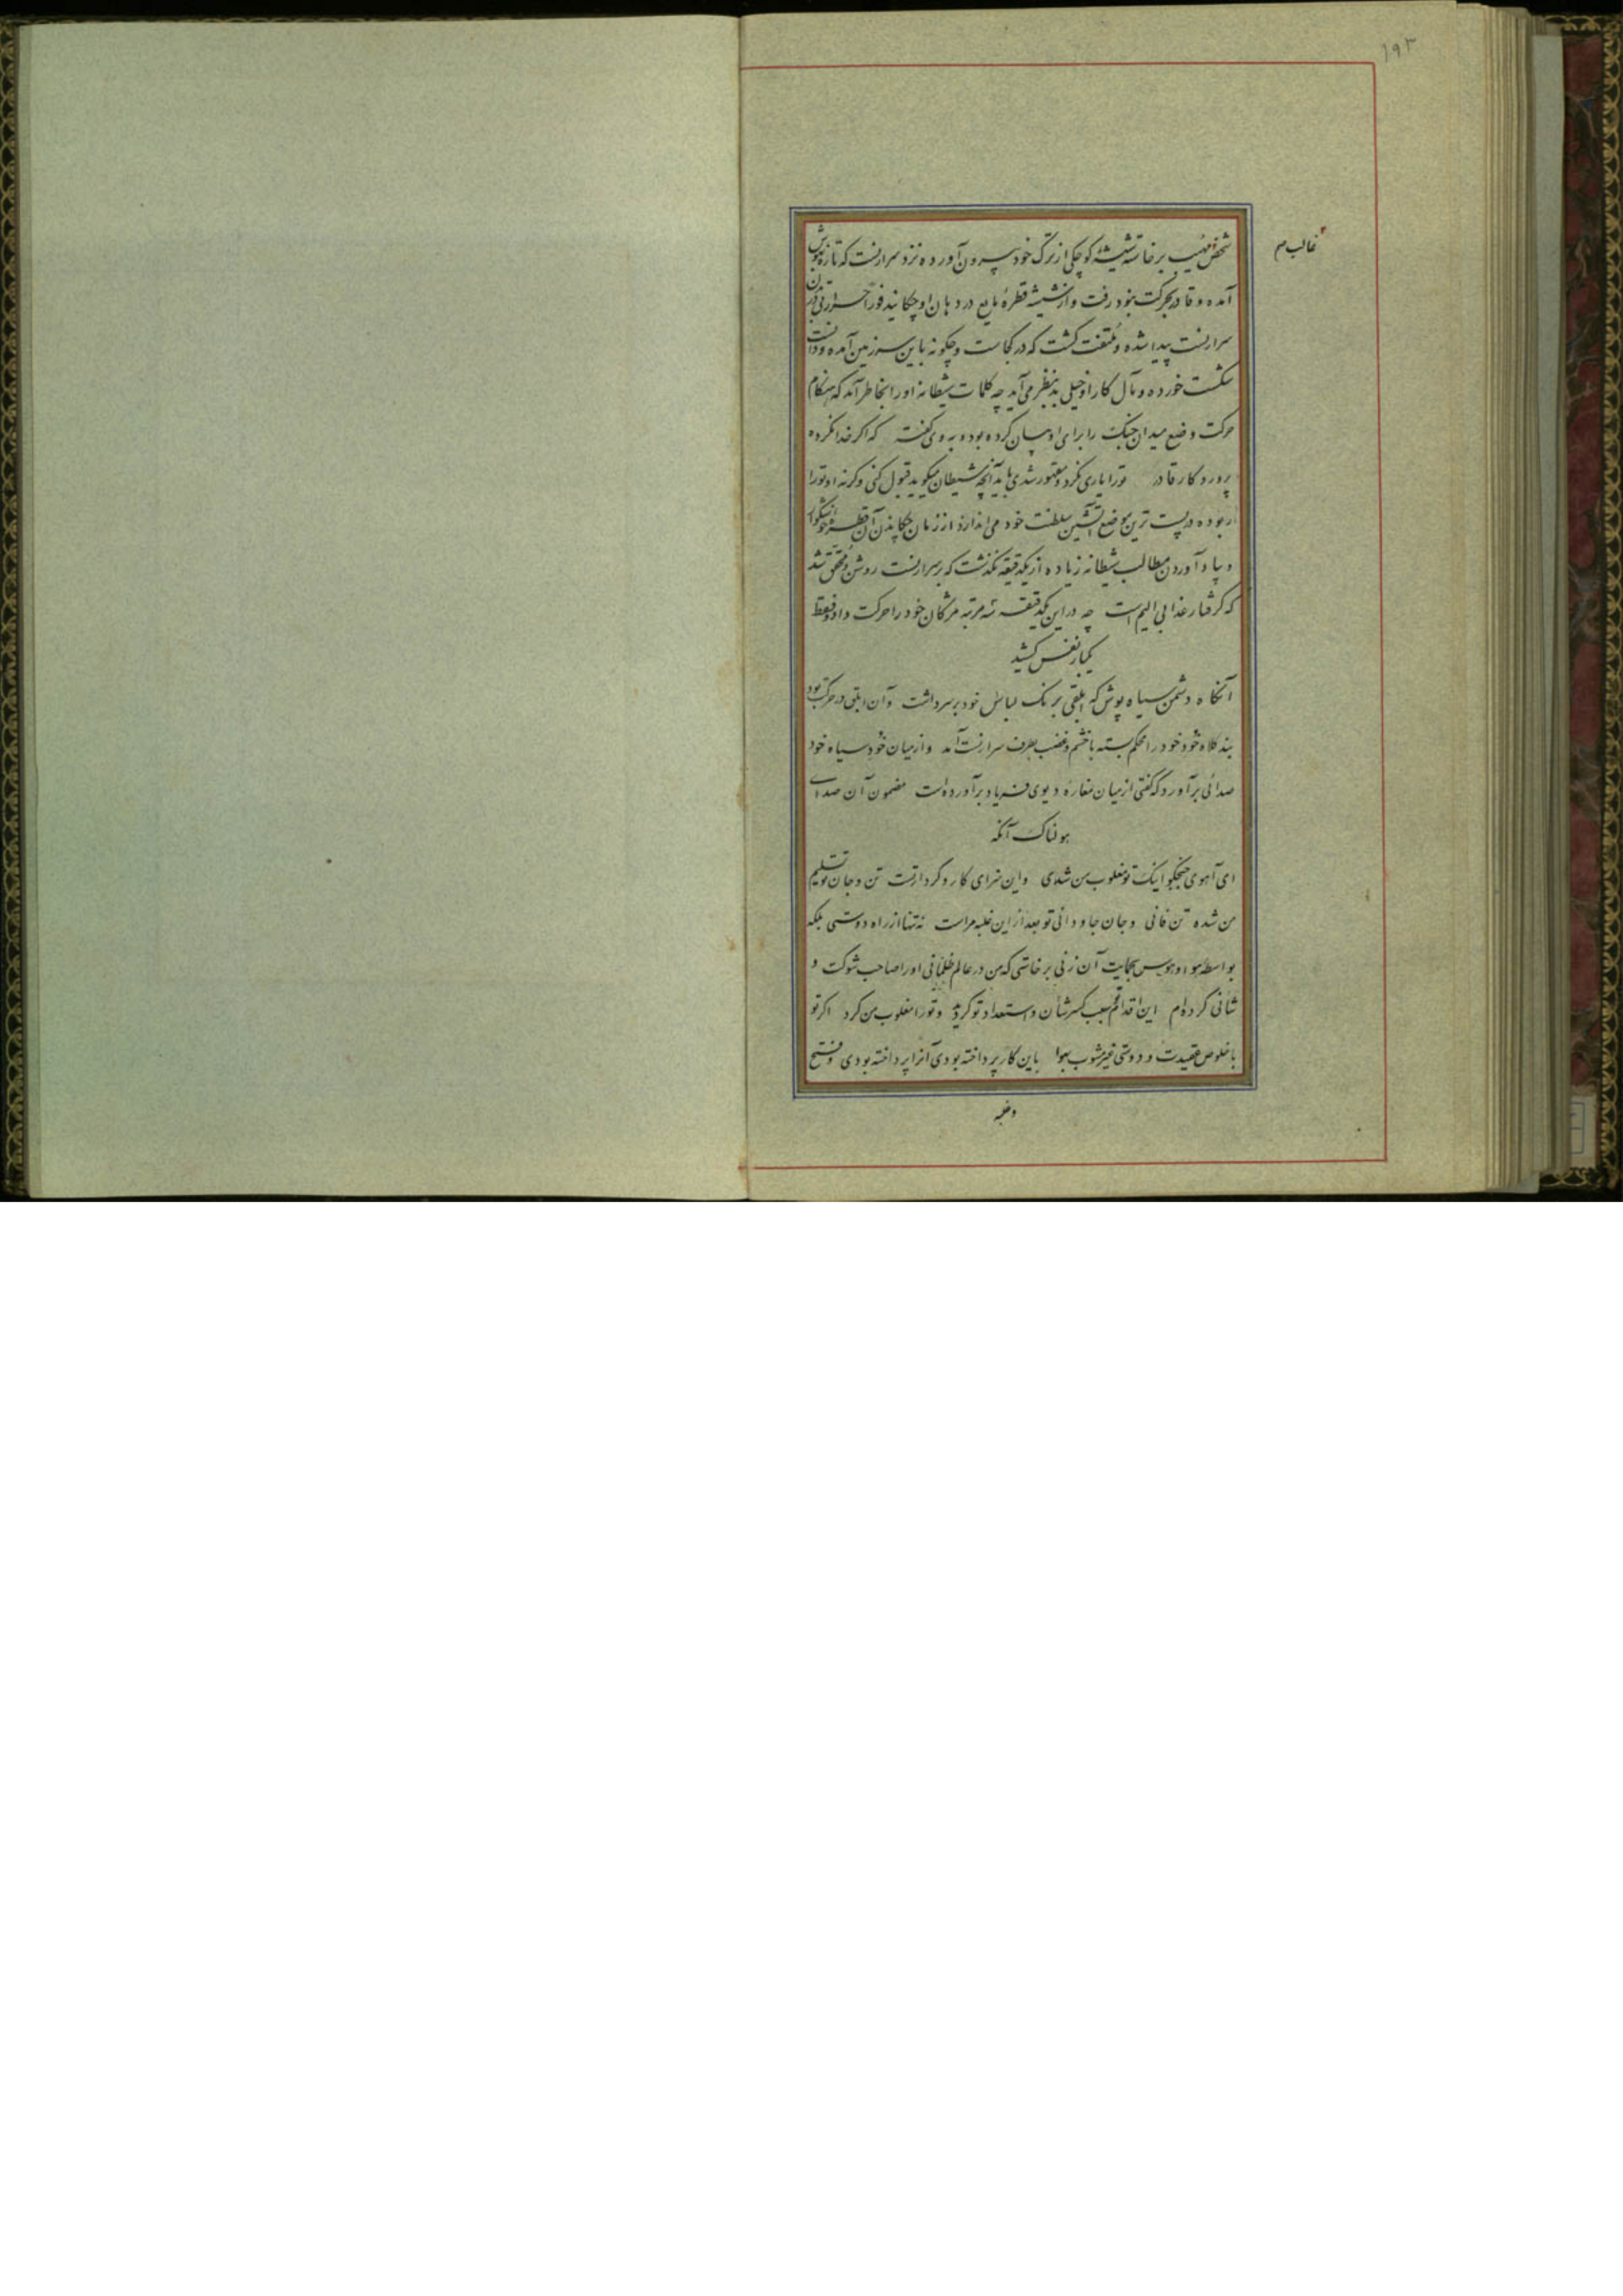 ۱۹۳
غالب م
شخص مهیب برخاسته شیشهٔ کوچکی از ترک خود بیرون آورده نزد سرارنست که تازه بهوش
آمده و قادر بحرکت نبود رفت و از شیشه قطرهٔ مایع در دهان او چکانید فوراً حرارتی در تن
سرارنست پیدا شده و ملتفت گشت که در کجاست و چگونه باین سرزمین آمده و دانست
شکست خورده و مآل کار او خیلی بد بنظر می‌آید چه کلمات شیطانه او را بخاطر آمد که هنگام
حرکت وضع میدان جنگ را برای او بیان کرده بود و به وی گفته که اگر خدا نکرده
پروردگار قادر تو را یاری نکرد و مقهور شدی باید آنچه شیطان میگوید قبول کنی وگرنه او تو را
ربوده در پست ترین موضع آتشین سلطنت خود می‌اندازد از زمان چکاندن آن قطره
و بیاد آوردن مطالب شیطانه زیاده از یکدقیقه نگذشت که بر سرارنست روشن و محقق شد
که گرفتار عذابی الیم است چه در این یکدقیقه سه مرتبه مژگان خود را حرکت داد و فقط
یکبار نفس کشید
آنگاه دشمن سیاه پوش که ابلقی برنگ لباس خود بر سر داشت و آن ابلق در حرکت بود
بند کلاه خود خود را محکم بسته با خشم و غضب بطرف سرارنست آمد و از میان خود سیاه خود
صدائی برآورد که گفتی از میان مغاره دیوی فریاد برآورده است مضمون آن صدای
هولناک آنکه
ای آهوی جنگجو اینک تو مغلوب من شدی و این سزای کار و کردار تست تن و جان تو تسلیم
من شده تن فانی و جان جاودانی تو بعد از این غلبه مراست نه تنها از راه دوستی بلکه
بواسطه هوا و هوس بحمایت آن زنی برخاستی که من در عالم ظلمانی او را صاحب شوکت و
شانی کرده‌ام این اقدام سبب کسر شأن و استعداد تو گردید و تو را مغلوب من کرد اگر تو
با خلوص عقیدت و دوستی غیر مشوب بهوا باین کار پرداخته بودی آنرا پرداخته بودی و فتح
و غلبه